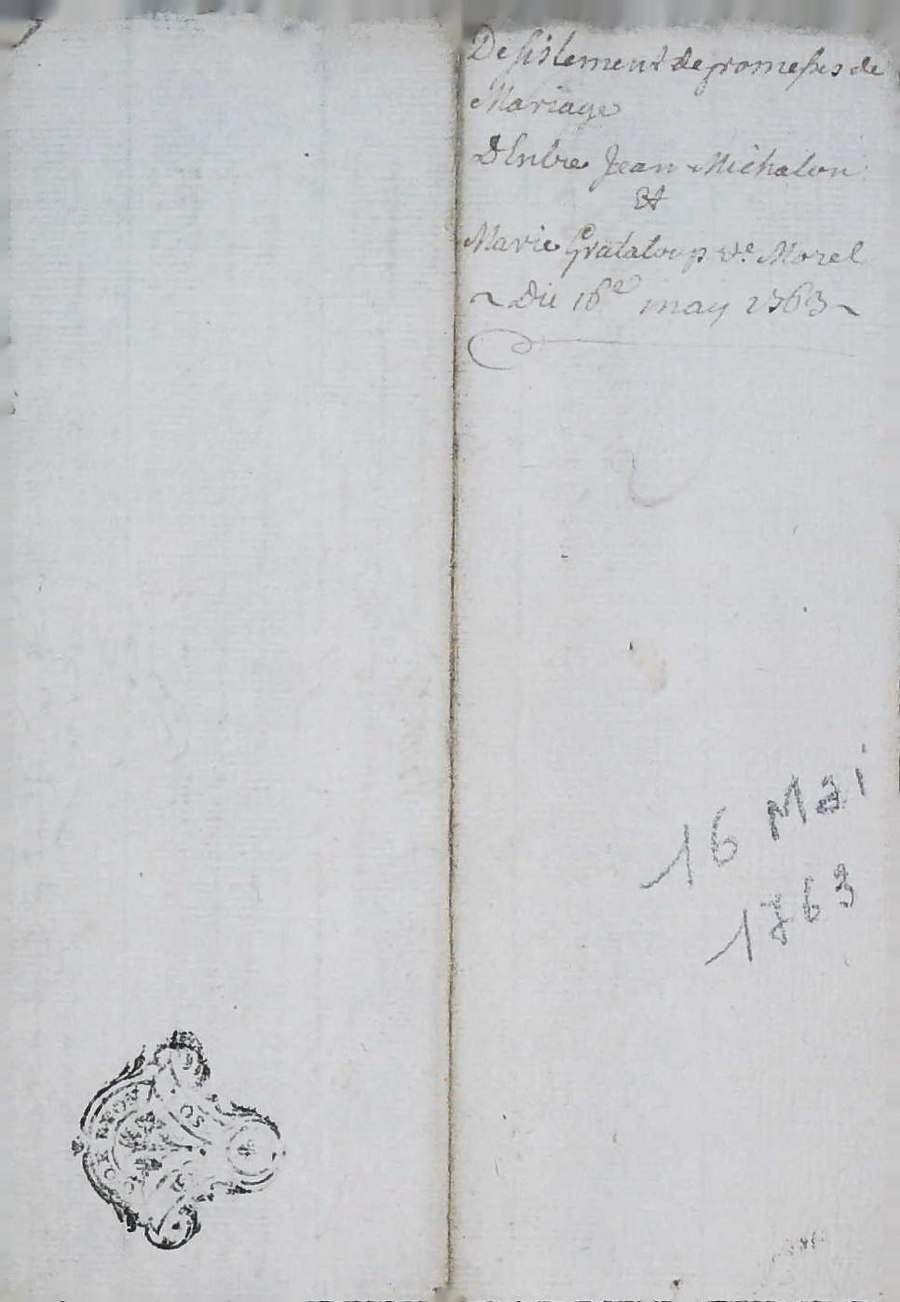 Desistement de promesses de
Mariage
D'Entre Jean Michalon
Et
Marie Grataloup Ve. Morel
~ Du 16e may 1763 ~
16 Mai
1763
DE LYON